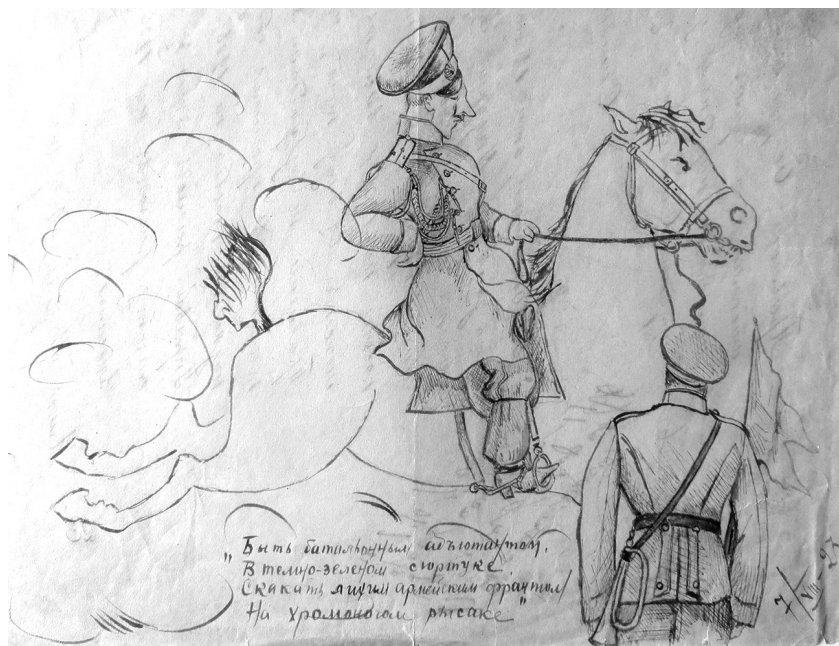 „Быть батальонным адъютантом,
В темно-зеленом сюртуке,
Скакать лихим армейским франтом
На хромоногом рысаке"
7/VIII-27